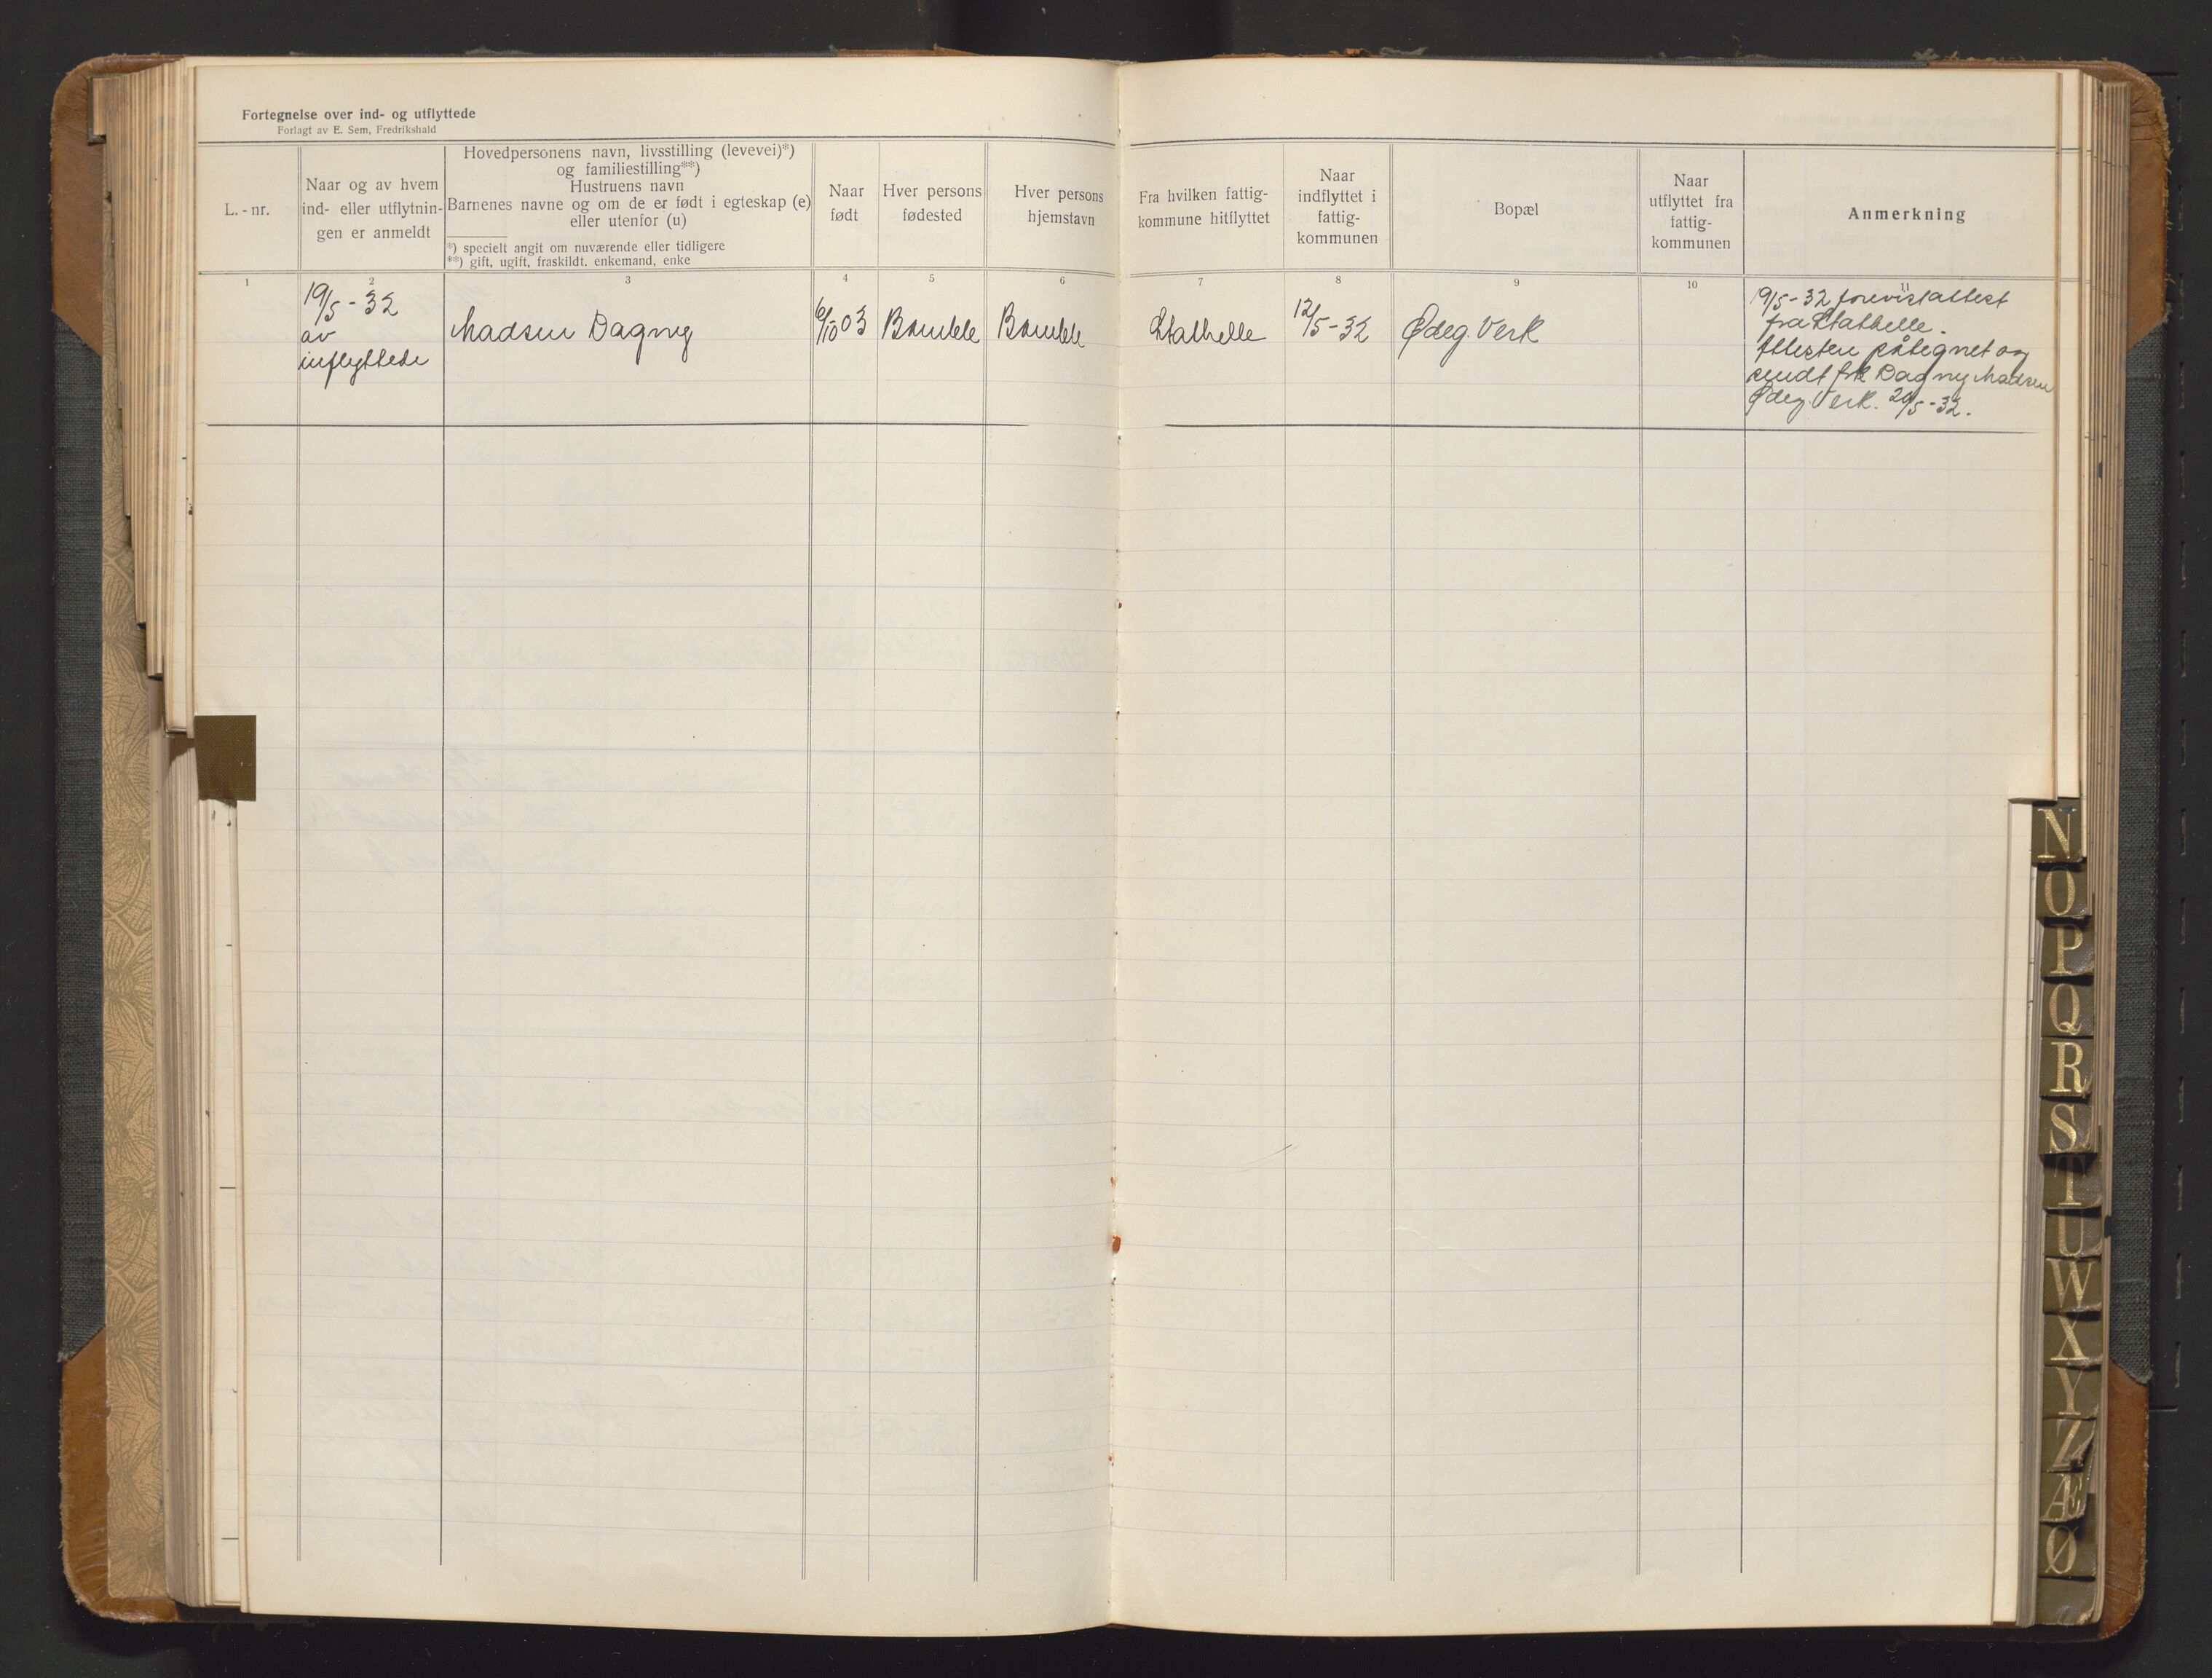 Fortegnelse over ind- og utflyttede
Forlagt av E. Sem, Fredrikshald
L. - nr.
Naar og av hvem
ind- eller utflytnin-
gen er anmeldt
Hovedpersonens navn, livsstilling (levevei)*)
og familiestilling**)
Hustruens navn
Barnenes navne og om de er født i egteskap (e)
eller utenfor (u)
*) specielt angit om nuværende eller tidligere
**) gift, ugift, fraskildt. enkemand, enke
Naar
født
Hver persons
fødested
Hver persons
hjemstavn
Fra hvilken fattig-
kommune hitflyttet
Naar
indflyttet i
fattig-
kommunen
Bopæl
Naar
utflyttet fra
fattig-
kommunen
Anmerkning
1
2
3
4
5
6
7
8
9
10
11
19/5 - 32
av
inflyttede
Madsen Dagny
6/10 03
Bamble
Bamble
Stathelle
12/5 - 32
Ødeg. Verk
19/5 - 32 forevist attest
fra Stathelle.
Attesten påtegnet og
sendt frk Dagny Madsen
Ødeg. Verk. 20/5 - 32.
N
O
P
Q
R
S
T
U
W
X
Y
Z
Æ
Ø